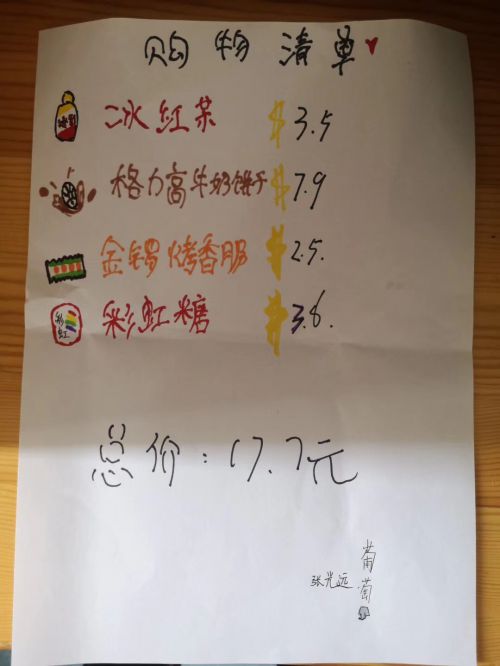 购物清单
冰红茶 $3.5
格力高牛奶饼干 $7.9
金锣烤香肠 $2.5.
彩虹
彩虹糖 $3.6.
总价:17.7元
葡萄
张光远